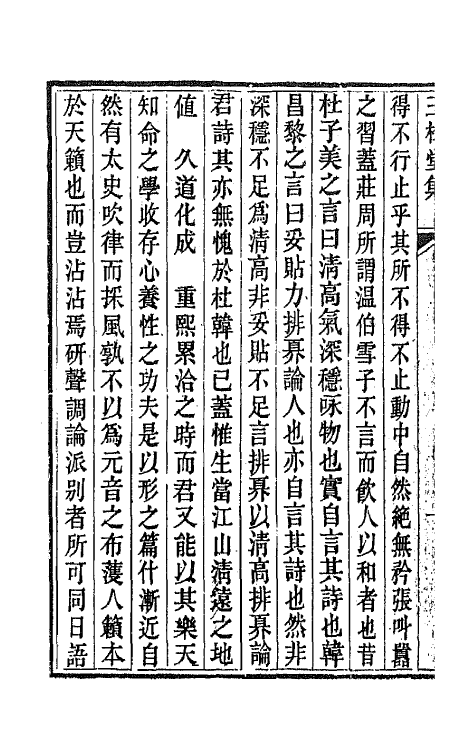 得不行止乎其所不得不止動中自然絶無矜張叫囂
之習蓋莊周所謂温伯雪子不言而飮人以和者也昔
杜子美之言曰淸高氣深穩咏物也實自言其詩也韓
昌黎之言曰妥貼力排奡論人也亦自言其詩也然非
深穩不足爲淸高非妥貼不足言排奡以淸高排奡論
君詩其亦無愧於杜韓也已蓋惟生當江山淸遠之地
值　久道化成　重熙累洽之時而君又能以其樂天
知命之學收存心養性之功夫是以形之篇什漸近自
然有太史吹律而採風孰不以爲元音之布濩人籟本
於天籟也而豈沾沾焉研聲調論派别者所可同日語